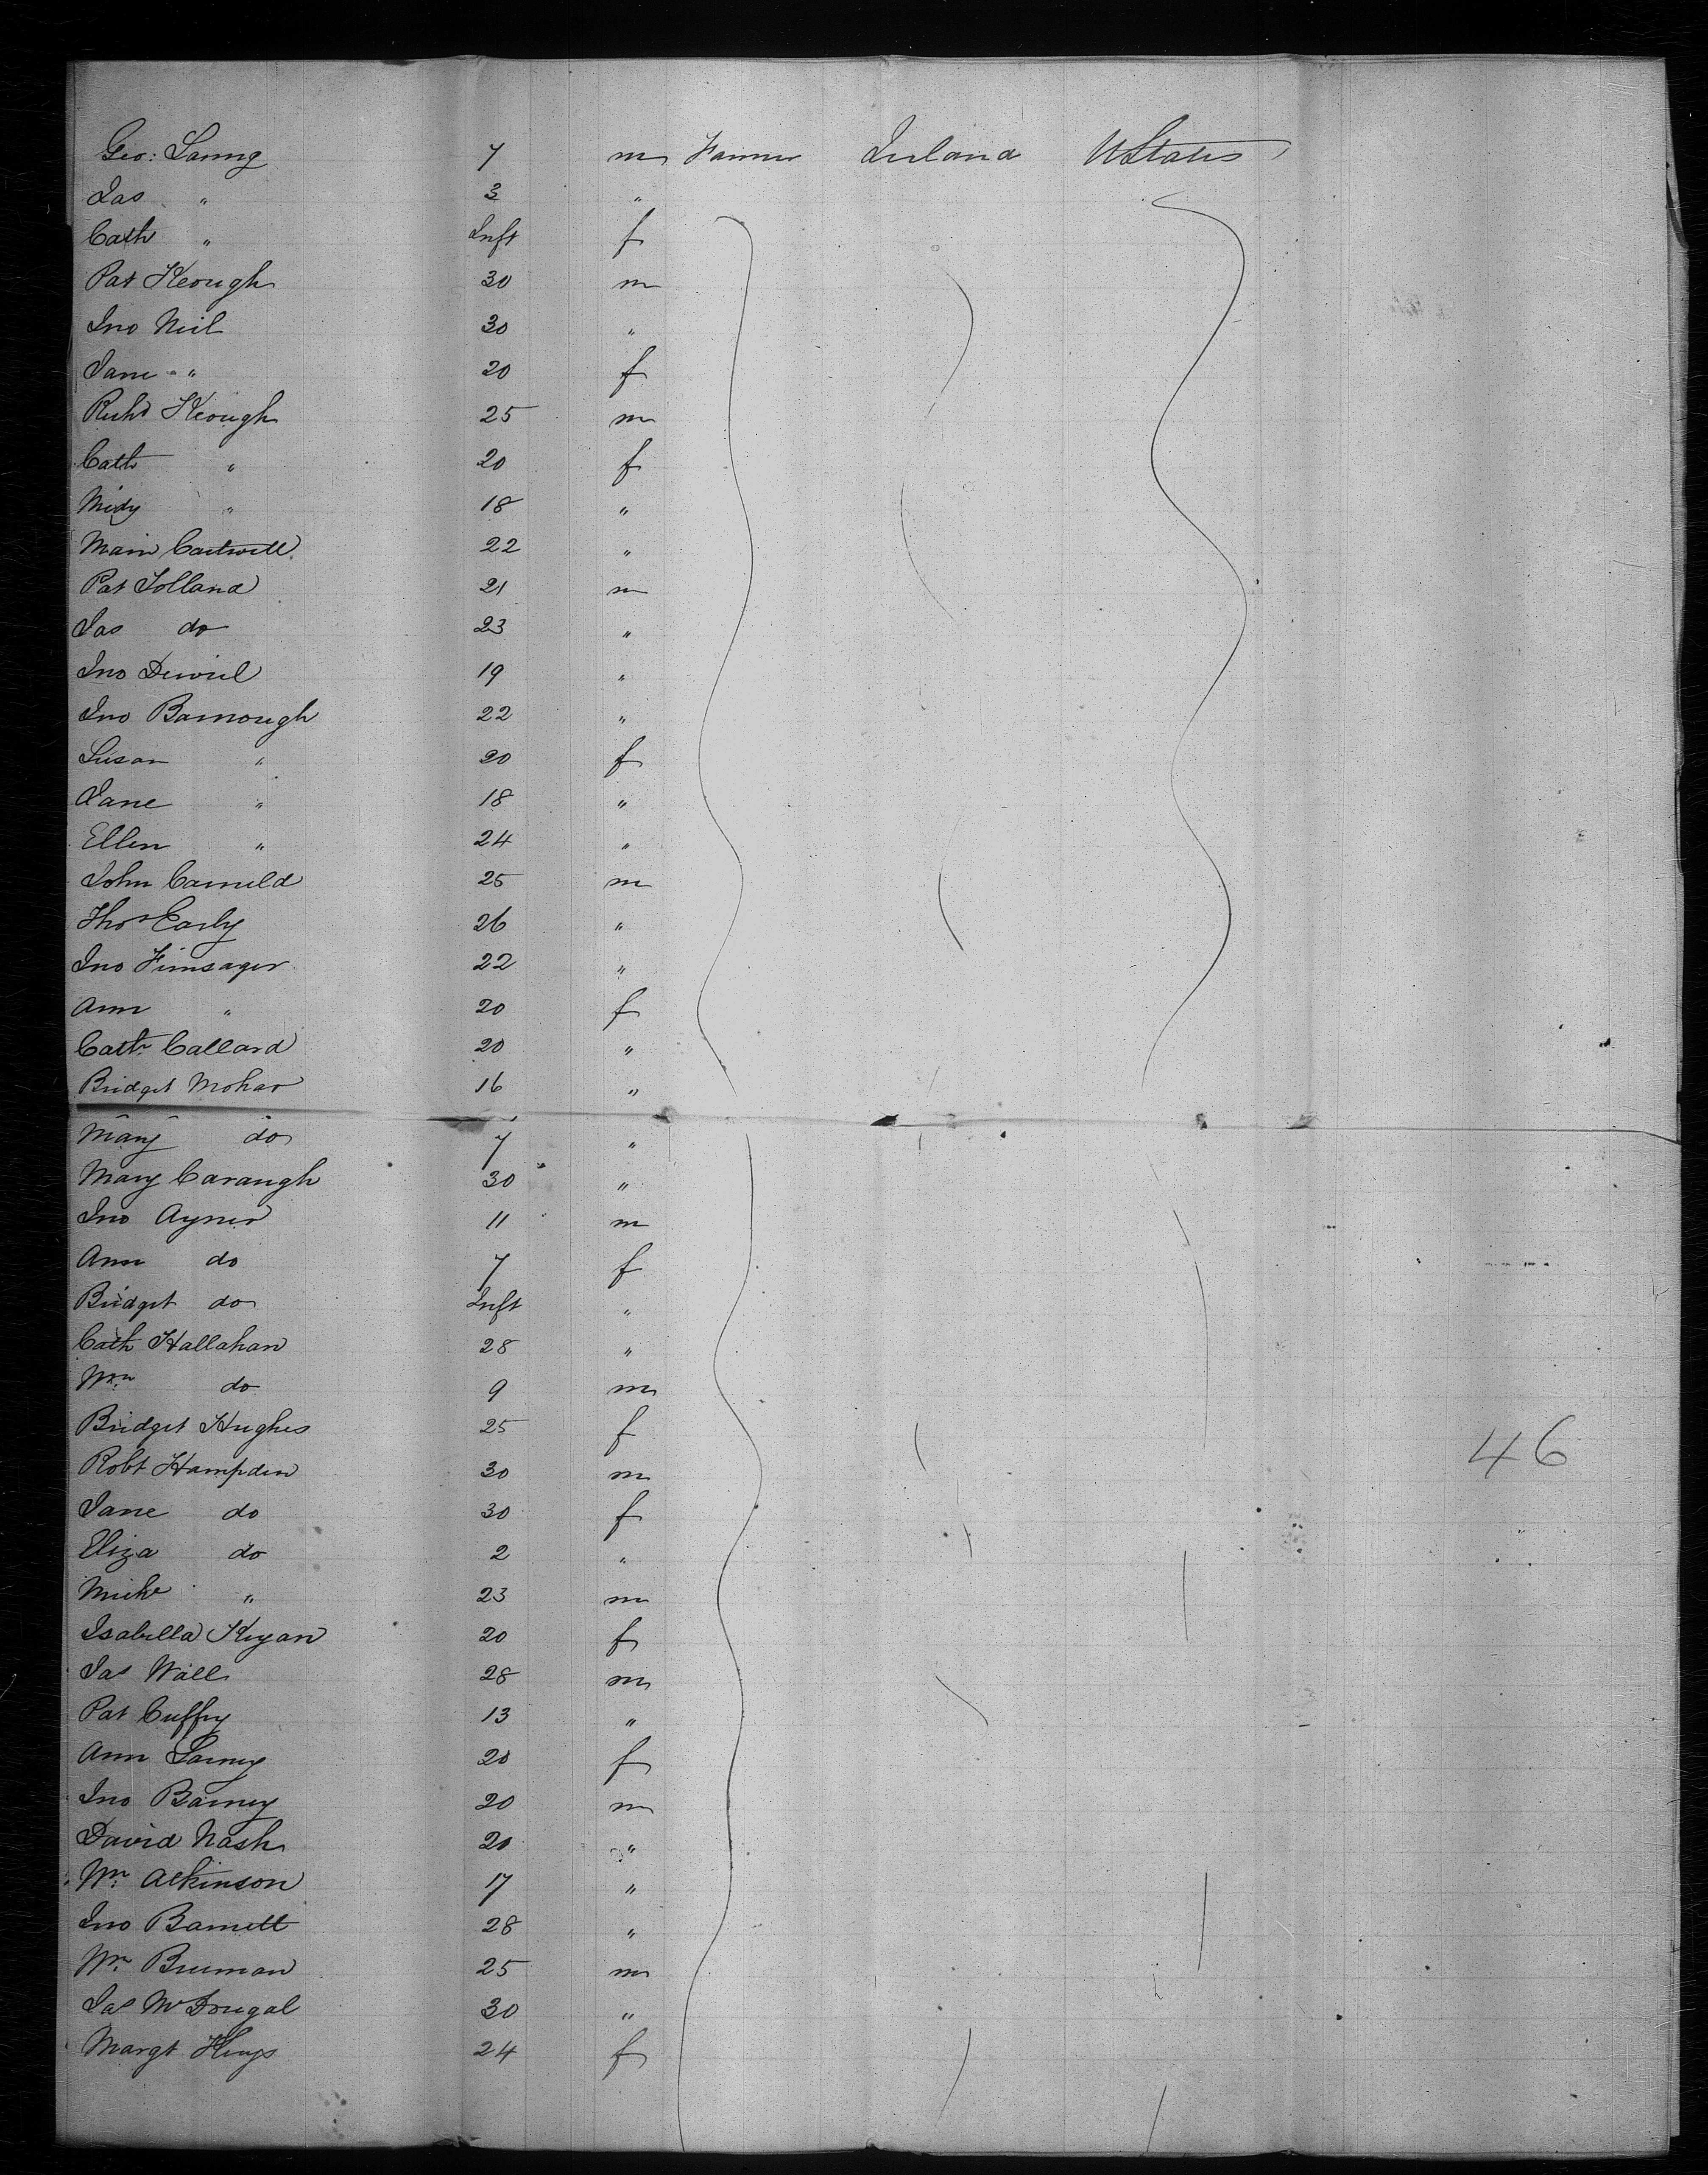 Geo: Laung 7 m Farmer Ireland U States
Jas " 3 "
Cath " Inft f
Pat Keough 30 m
Jno Neil 30 "
Jane " 20 f
Richd Keough 25 m
Cath " 20 f
Midy " 18 "
Maria Cartwell 22 "
Pat Tolland 21 m
Jas do 23 "
Jno 19 "
Jno Barnough 22 "
Susan " 20 f
Jane " 18 "
Ellen " 24 "
John 25 m
Thos Early 26 "
Jno 22 "
Ann " 20 f
Cath Callard 20 "
Bridget Mohar 16 "
Mary do 7 "
Mary Cavangh 30 "
Jno Ayner 11 m
Ann do 7 f
Bridget do Inft "
Cath Hallahan 28 "
Wm do 9 m
Bridget Hughes 25 f
46
Robt Hampden 30 m
Jane do 30 f
Eliza do 2 "
Michl " 23 m
Isabella Keyan 20 f
Jas Wall 28 m
Pat Cuffy 13 "
Ann 20 f
Jno Barney 20 m
David Nash 20 "
Wm Atkinson 17 "
Jno Barnett 28 "
Wm Breman 25 m
Jas McDougal 30 "
Margt Keys 24 f